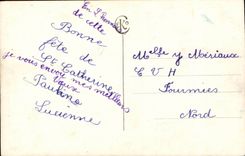 En
de cette
Bonne
fête de
Ste Catherine
je vous envoie mes meilleurs
vœux
Lucienne
Melle Y Mériaux
E V H
Fourmies
Nord